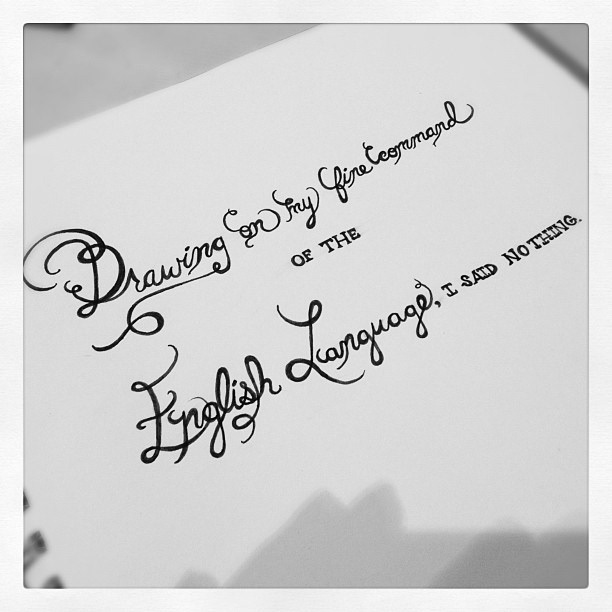 Drawing on my fine command
OF THE
English Language, I SAID NOTHING.